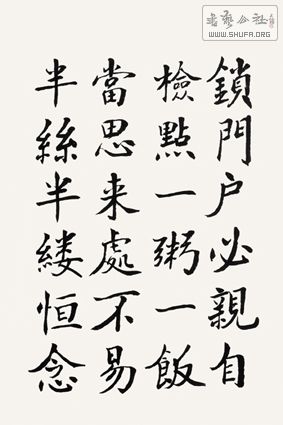 書藝公社
WWW.SHUFA.ORG
鎖門户必親自
檢點一粥一飯
當思来處不易
半絲半縷恒念